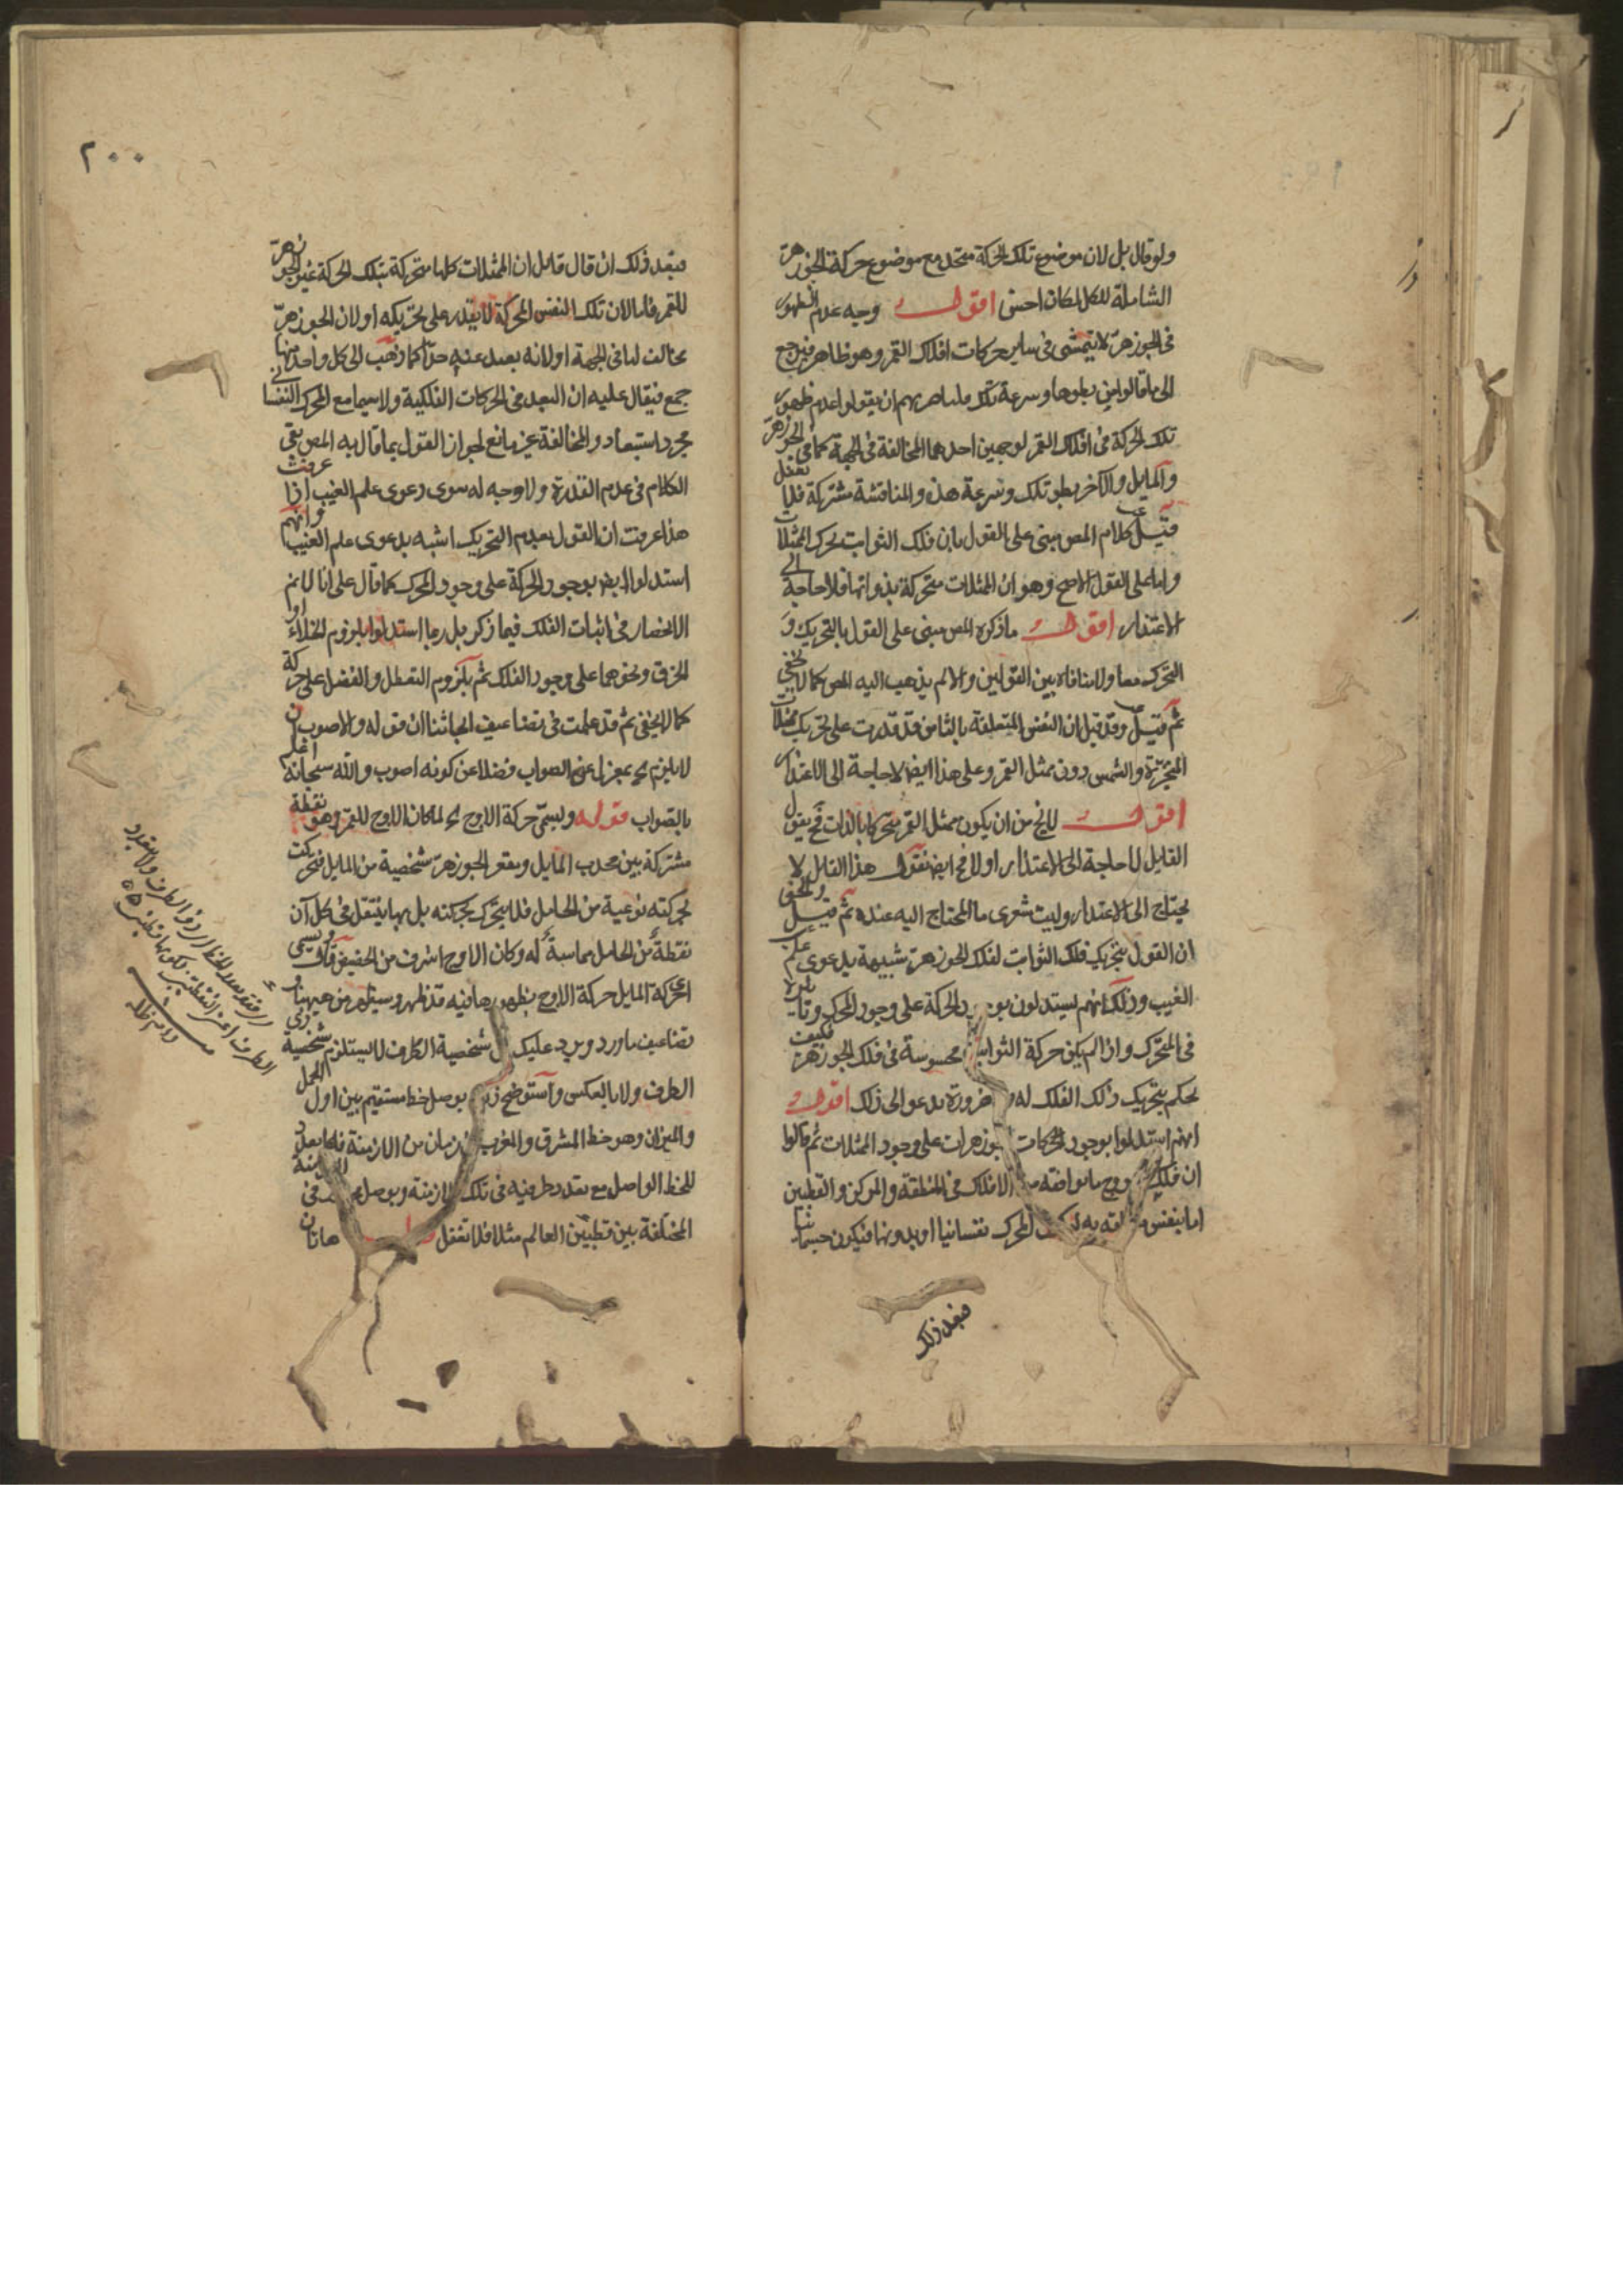 ولو قال بل لان موضوع تلك الحركة متحد مع موضوع حركة الجوزهر
الشاملة للكل لكان احسن اقول وجه عدم الظهور
فى الجوزهر لا يتمشى فى ساير حركات افلاك القمر وهو ظاهر فيرجع
الى ما قالوا من بطوها وسرعة تلك ان يقولوا عدم ظهور
تلك الحركة فى افلاك القمر لوجهين احدهما المخالفة فى الجهة كما فى الجوزهر
والمايل والآخر بطو تلك وسرعة هذه والمناقشة مشتركة فلا تغفل
قيل كلام المص مبنى على القول بان فلك الثوابت يحرك الممثلات
واما على القول الاصح وهو ان الممثلات متحركة بذواتها فلا حاجة الى
الاعتذار اقول ما ذكره المص مبنى على القول بالتحريك و
التحرك معا ولا منافاة بين القولين والا لم يذهب اليه المص كما لا يخفى
ثم قيل وقد قيل ان النفس المتعلقة بالثامن قد قدرت على تحريك ممثلات
المتحيرة والشمس دون ممثل القمر وعلى هذا ايضا لا حاجة الى الاعتذار
اقول لا يخ من ان يكون ممثل القمر متحركا بالذات فح يقول
القايل لا حاجة الى الاعتذار او لا فح ايض نقول هذا القايل لا
يحتاج الى الاعتذار وليت شعرى ما المحتاج اليه عنده ثم قيل والحق
ان القول بتحريك فلك الثوابت لفلك الجوزهر شبيهة بدعوى علم
الغيب وذلك انهم يستدلون بوجود الحركة على وجود المحرك
فى المتحرك واذا لم يكن حركة الثوابت محسوسة فى فلك الجوزهر فكيف
يحكم بتحريك ذلك الفلك له ضرورة تدعو الى ذلك اقول
انهم استدلوا بوجود الحركات الجوزهرات على وجود الممثلات ثم قالوا
ان فلك البروج ما يوافقه من الافلاك فى المنطقة والمركز والقطبين
اما بنفس المحرك نفسانيا او بدونها فيكون جسمانيا
فبعد ذلك
٢٠٠
فبعد ذلك ان قال قايل ان الممثلات كلها متحركة بتلك الحركة غير الجوزهر
للقمر فاما لان تلك النفس المحركة لا يقدر على تحريكه او لان الجوزهر
يخالف لها فى الجهة او لانه بعيد عنه جدا كما ذهب الى كل واحد منها
جمع فيقال عليه ان البعد فى الحركات الفلكية ولا سيما مع المحرك النفسانى
مجرد استبعاد والمخالفة غير مانع لجواز القول بما قال به المص بقى
الكلام فى عدم القدرة ولا وجه له سوى دعوى علم الغيب اذا عرفت
هذا عرفت ان القول بعدم التحريك اشبه بدعوى علم الغيب وانهم
استدلوا ايض بوجود الحركة على وجود المحرك كما قال على انا لا نم
الانحصار فى اثبات الفلك فيما ذكر بل ربما استدلوا بلزوم الخلاء او
الخرق ونحوهما على وجود الفلك ثم بلزوم التعطل والفضل على حركة
كما لا يخفى ثم قد علمت فى تضاعيف ابحاثنا ان قوله والاصوب ان
لا يلزم ح بمعزل عن الصواب فضلا عن كونه اصوب والله سبحانه اعلم
بالصواب قوله ويسمى حركة الاوج ح لما كان الاوج للقمر وهو نقطة
مشتركة بين محدب المايل ومقعر الجوزهر شخصية من المايل فتحركت
بحركته نوعية من الحامل فلا يتحرك بحركته بل بها ينتقل فى كل آن
نقطة من الحامل مماسة له وكان الاوج اشرف من الحضيض قال ويسمى
اى حركة المايل حركة الاوج بظهورها فيه قد ظهر وسيظهر من هيهنا و
تضاعيف ما ورد ويرد عليك ان شخصية الطرف لا يستلزم شخصية ذى
الطرف ولا بالعكس واستوضح ذلك بوصل خط مستقيم بين اول الحمل
والميزان وهو خط المشرق والمغرب فى زمان من الازمنة فلها تعدد
للخط الواصل مع تعدد طرفيه فى تلك الازمنة وبوصل فى الازمنة
المختلفة بين قطبين العالم مثلا فلا تغفل هاتان